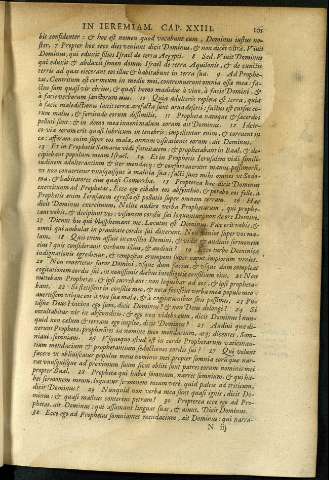 IN IEREMIAM. CAP. XXIII. 101
bit confidenter: & hoc est nomen quod vocabunt eum, Dominus iustus no-
ster. 7 Propter hoc ecce dies veniunt dicit Dominus, & non dicet vltra, Viuit
Dominus, qui eduxit filios Israel de terra Aegypti. 8 Sed, Viuit Dominus
qui eduxit & adduxit semen domus Israel de terra Aquilonis, & de cunctis
terris ad quas eieceram eos illuc & habitabunt in terra sua. 9 Ad Prophe-
tas, Contritum est cor meum in medio mei, contremuerunt omnia ossa mea: fa-
ctus sum quasi vir ebrius, & quasi homo madidus à vino, à facie Domini, &
à facie verborum sanctorum eius. 10 Quia adulteris repleta est terra, quia
à facie maledictionis luxit terra, arefacta sunt arua deserti: factus est cursus eo-
rum malus, & fortitudo eorum dissimilis. 11 Propheta namque & sacerdos
polluti sunt: & in domo mea inueni malum eorum ait Dominus. 12 Idcir-
co via eorum erit quasi lubricum in tenebris: impellentur enim, & corruent in
ea: afferam enim super eos mala, annum visitationis eorum, ait Dominus.
13 Et in Prophetis Samariæ vidi fatuitatem, & prophetabant in Baal, & de-
cipiebant populum meum Israel. 14 Et in Prophetis Ierusalem vidi simili-
tudinem adulterantium & iter mendacij, & confortauerunt manus pessimorum,
vt non conuerteretur vnusquisque à malitia sua: facti sunt mihi omnes vt Sodo-
ma, & habitatores eius quasi Gomorrha. 15 Propterea hæc dicit Dominus
exercituum ad Prophetas, Ecce ego cibabo eos absynthio, & potabo eos felle, à
Prophetis enim Ierusalem egressa est pollutio super omnem terram. 16 Hæc
dicit Dominus exercituum, Nolite audire verba Prophetarum, qui prophe-
tant vobis, & decipiunt vos: visionem cordis sui loquuntur, non de ore Domini.
17 Dicunt his qui blasphemant me, Locutus est Dominus, Pax erit vobis, &
omni qui ambulat in prauitate cordis sui dixerunt, Non veniet super vos ma-
lum. 18 Quis enim affuit in consilio Domini, & vidit & audiuit sermonem
eius? quis considerauit verbum illius, & audiuit? 19 Ecce turbo Dominicæ
indignationis egredietur, & tempestas erumpens super caput impiorum veniet.
20 Non reuertetur furor Domini, vsque dum faciat, & vsque dum compleat
cogitationem cordis sui, in nouissimis diebus intelligetis consilium eius. 21 Non
mittebam Prophetas, & ipsi currebant: non loquebar ad eos, & ipsi propheta-
bant. 22 Si stetissent in consilio meo, & nota fecissent verba mea populo meo:
auertissem vtique eos à via sua mala, & à cogitationibus suis pessimis. 23 Pu-
tasne Deus è vicino ego sum, dicit Dominus? & non Deus de longe? 24 Si
occultabitur vir in absconditis, & ego non videbo eum, dicit Dominus? nun-
quid non cælum & terram ego impleo, dicit Dominus? 25 Audiui quæ di-
xerunt Prophetæ, prophetantes in nomine meo mendacium, atq; dicentes, Som-
niaui, somniaui. 26 Vsquequo istud est in corde Prophetarum vaticinan-
tium mendacium & prophetantium seductiones cordis sui? 27 Qui volunt
facere vt obliuiscatur populus meus nominis mei propter somnia eorum quæ nar-
rat vnusquisque ad proximum suum sicut obliti sunt patres eorum nominis mei
propter Baal. 28 Propheta qui habet somnium, narret somnium, & qui ha-
bet sermonem meum, loquatur sermonem meum verè. quid paleis ad triticum,
dicit Dominus? 29 Nunquid non verba mea sunt quasi ignis, dicit Do-
minus: & quasi malleus conterens petram? 30 Propterea ecce ego ad Pro-
phetas, ait Dominus: qui assumunt linguas suas, & aiunt, Dicit Dominus.
32 Ecce ego ad Prophetas somniantes mendacium, ait Dominus: qui narra-
N iij